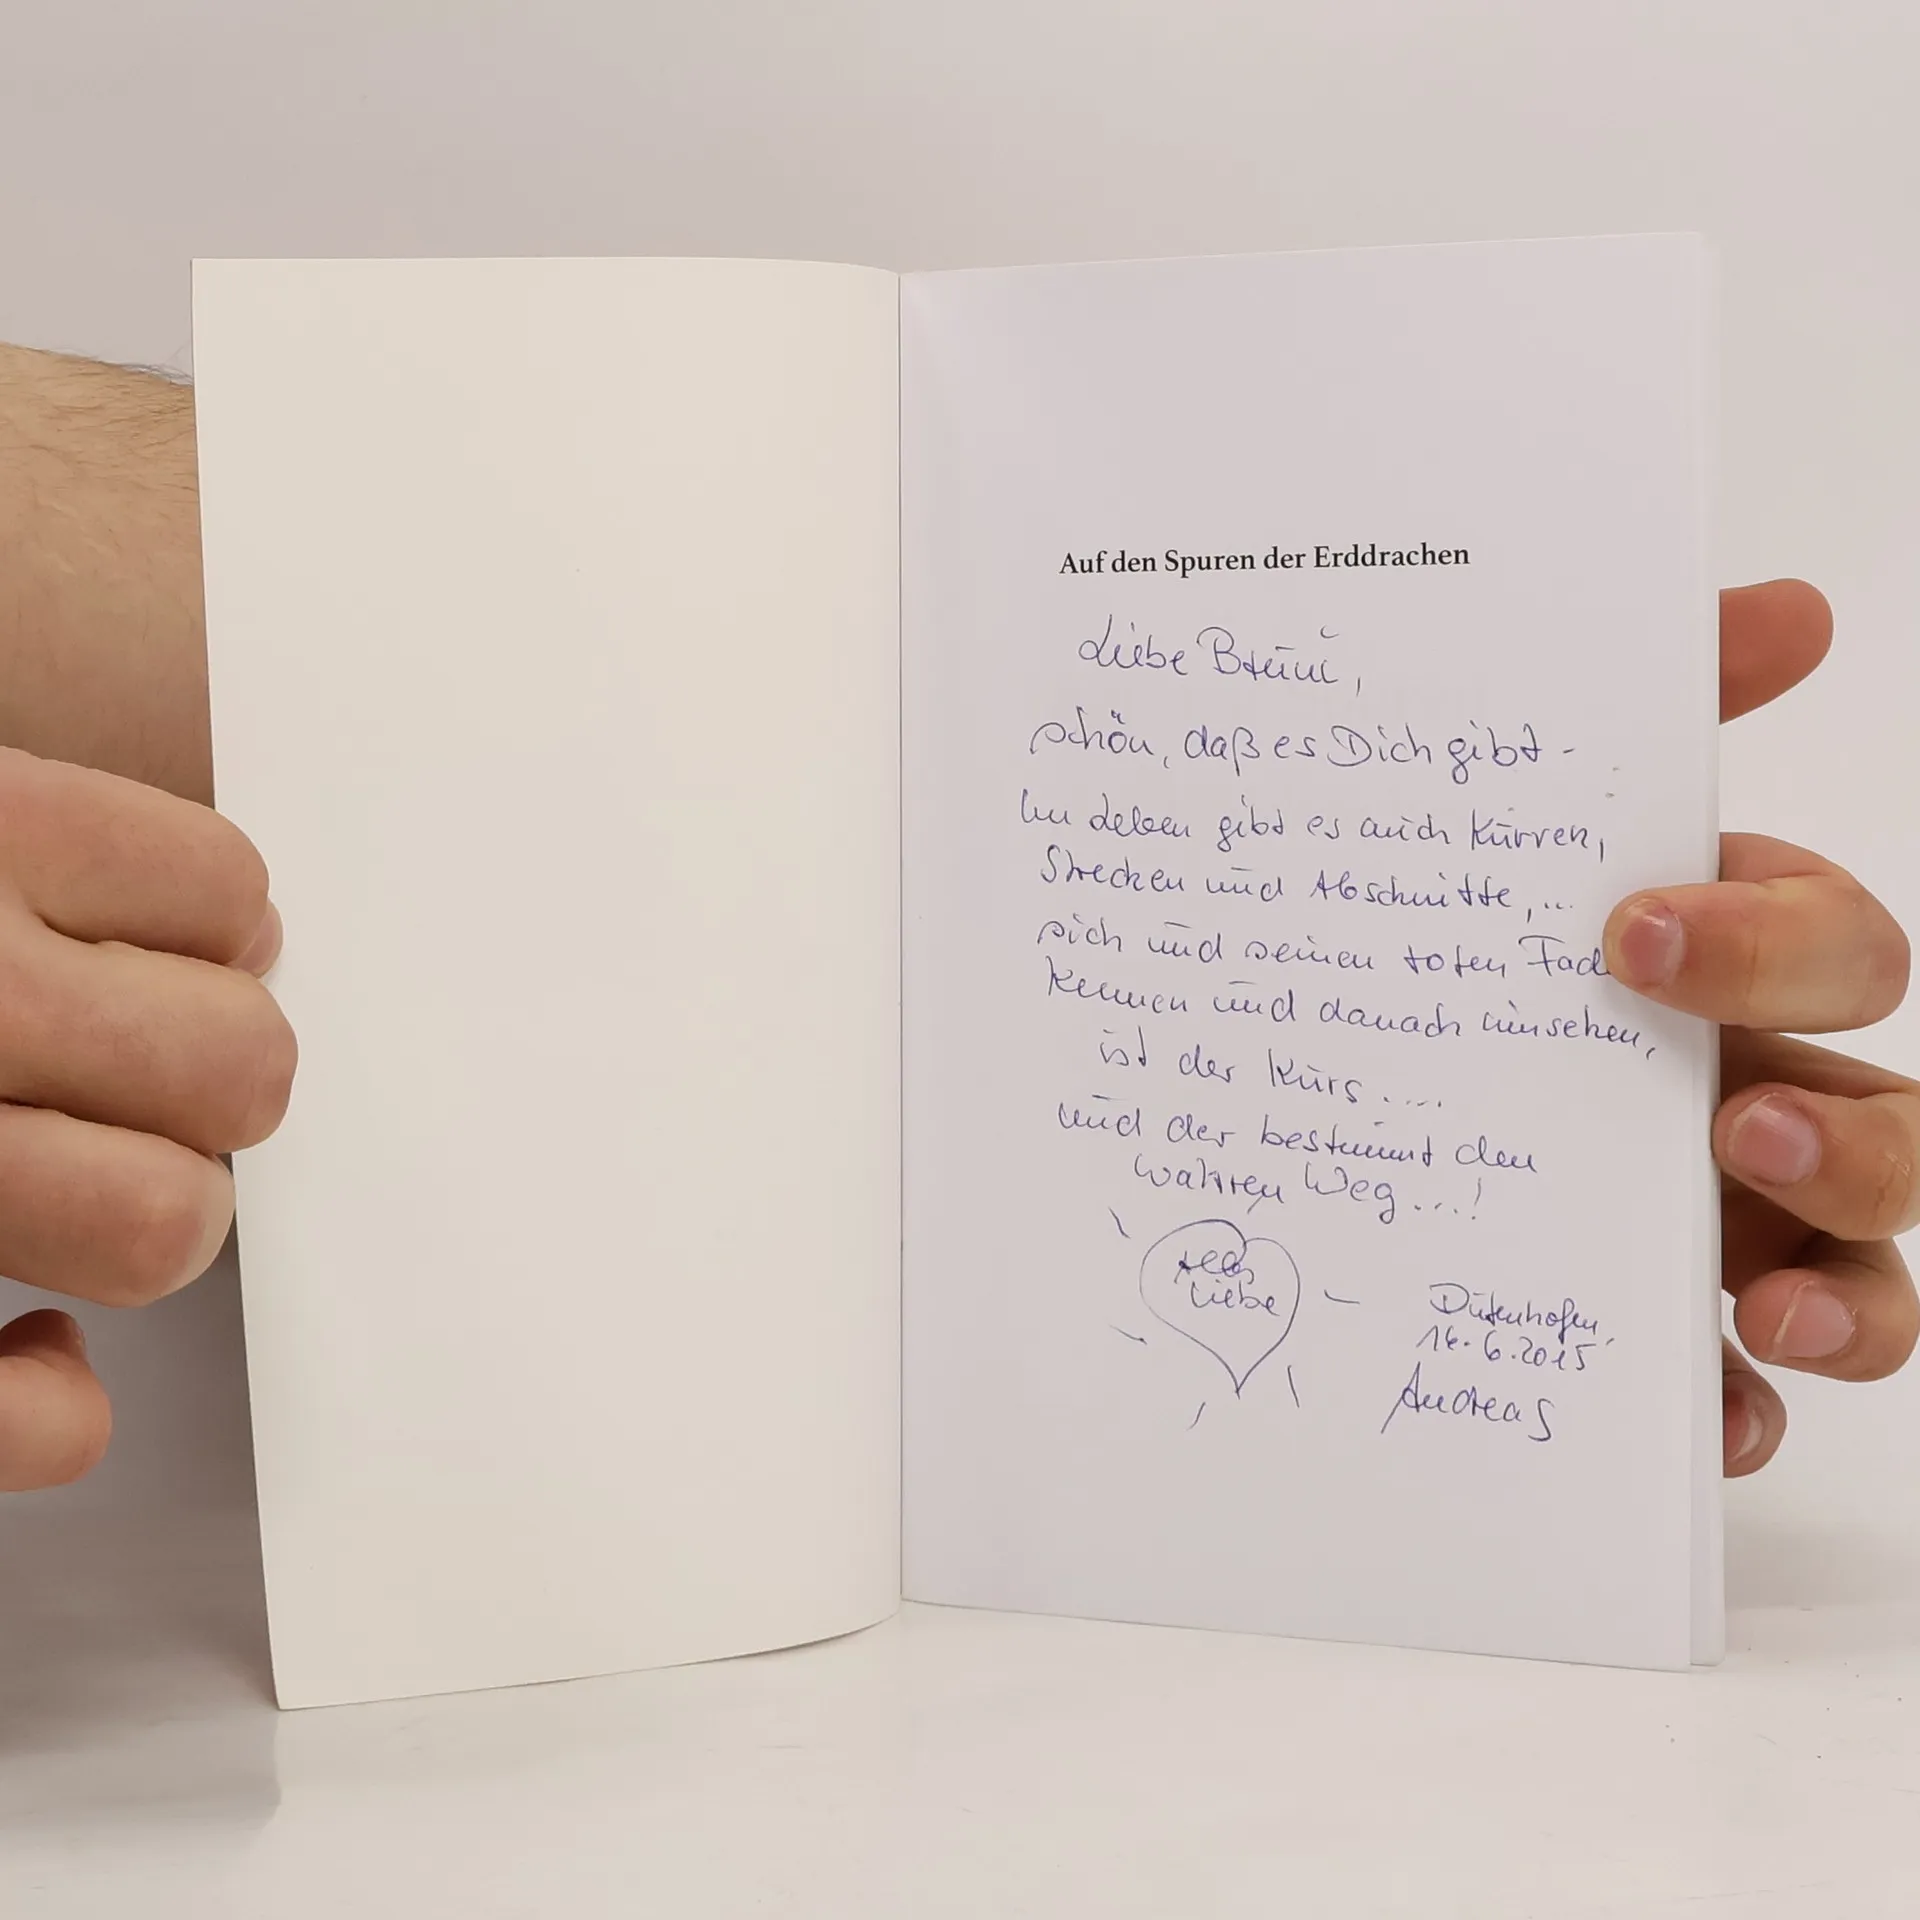 Auf den Spuren der Erddrachen
Liebe Bruni,
schön, daß es Dich gibt -
Im Leben gibt es auch Kurven,
Strecken und Abschnitte,...
sich und seinen roten Fad
kennen und danach umsehen,
ist der Kurs.....
und der bestimmt den
wahren Weg...!
Alles
Liebe
Dutenhofen,
16.6.2015
Andreas